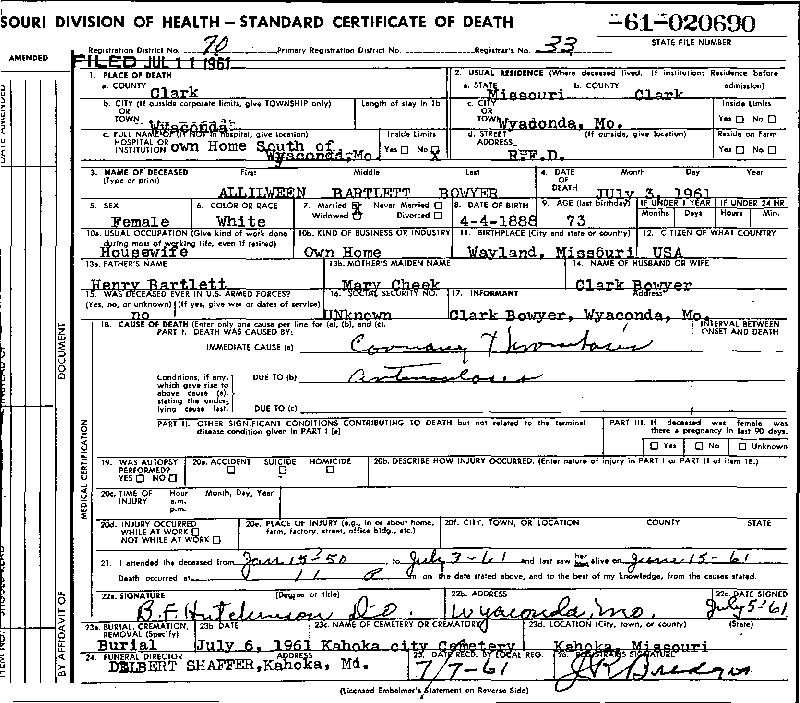 SOURI DIVISION OF HEALTH — STANDARD CERTIFICATE OF DEATH
-61-020690
STATE FILE NUMBER
Registration District No. 70 Primary Registration District No. Registrar's No. 33
AMENDED
FILED JUL 11 1961
1. PLACE OF DEATH
a. COUNTY
Clark
2. USUAL RESIDENCE (Where deceased lived. If institution: Residence before admission)
a. STATE Missouri b. COUNTY Clark
b. CITY (If outside corporate limits, give TOWNSHIP only)
OR
TOWN Wyaconda
Length of stay in 1b
c. CITY
OR
TOWN Wyaconda, Mo.
Inside Limits
Yes No
c. FULL NAME OF (If NOT in hospital, give location)
HOSPITAL OR
INSTITUTION own Home South of
Wyaconda, Mo
Inside Limits
Yes No X
d. STREET
ADDRESS
(If outside, give location)
RFD.
Reside on Farm
Yes No
3. NAME OF DECEASED
(Type or print)
First Middle Last
ALLILWEEN BARTLETT BOWYER
4. DATE
OF
DEATH
Month Day Year
JULY 3, 1961
5. SEX
Female
6. COLOR OR RACE
White
7. Married Never Married
Widowed Divorced
8. DATE OF BIRTH
4-4-1888
9. AGE (last birthday)
73
IF UNDER 1 YEAR
Months Days
IF UNDER 24 HR
Hours Min.
10a. USUAL OCCUPATION (Give kind of work done
during most of working life, even if retired)
Housewife
10b. KIND OF BUSINESS OR INDUSTRY
Own Home
11. BIRTHPLACE (City and state or country)
Wayland, Missouri
12. CITIZEN OF WHAT COUNTRY
USA
13a. FATHER'S NAME
Henry Bartlett
13b. MOTHER'S MAIDEN NAME
Mary Cheek
14. NAME OF HUSBAND OR WIFE
Clark Bowyer
15. WAS DECEASED EVER IN U.S. ARMED FORCES?
(Yes, no, or unknown) (If yes, give war or dates of service)
no
16. SOCIAL SECURITY NO.
UNknown
17. INFORMANT Address
Clark Bowyer, Wyaconda, Mo.
18. CAUSE OF DEATH (Enter only one cause per line for (a), (b), and (c).
PART I. DEATH WAS CAUSED BY:
INTERVAL BETWEEN
ONSET AND DEATH
IMMEDIATE CAUSE (a) Coronary Thrombosis
Conditions, if any,
which gave rise to
above cause (a),
stating the under-
lying cause last.
DUE TO (b)
DUE TO (c)
PART II. OTHER SIGNIFICANT CONDITIONS CONTRIBUTING TO DEATH but not related to the terminal
disease condition given in PART I (a)
PART III. If deceased was female was
there a pregnancy in last 90 days.
Yes No Unknown
19. WAS AUTOPSY
PERFORMED?
YES NO
20a. ACCIDENT SUICIDE HOMICIDE
20b. DESCRIBE HOW INJURY OCCURRED. (Enter nature of injury in PART I or PART II of item 18.)
20c. TIME OF
INJURY
Hour Month, Day, Year
a.m.
p.m.
20d. INJURY OCCURRED
WHILE AT WORK
NOT WHILE AT WORK
20e. PLACE OF INJURY (e.g., in or about home,
farm, factory, street, office bldg., etc.)
20f. CITY, TOWN, OR LOCATION COUNTY STATE
21. I attended the deceased from Jan 15-50 to July 3-61 and last saw her alive on June 15-61
Death occurred at 11 P m on the date stated above, and to the best of my knowledge, from the causes stated.
22a. SIGNATURE (Degree or title)
B.F. Hutchinson D.O.
22b. ADDRESS
Wyaconda, Mo.
22c. DATE SIGNED
July 5-61
23a. BURIAL, CREMATION,
REMOVAL (Specify)
Burial
23b. DATE
July 6, 1961
23c. NAME OF CEMETERY OR CREMATORY
Kahoka city Cemetery
23d. LOCATION (City, town, or county) (State)
Kahoka, Missouri
24. FUNERAL DIRECTOR ADDRESS
DELBERT SHAFFER, Kahoka, Md.
25. DATE RECD. BY LOCAL REG.
7/7-61
26. REGISTRAR'S SIGNATURE
(Licensed Embalmer's Statement on Reverse Side)
DATE AMENDED
DOCUMENT
MEDICAL CERTIFICATION
BY AFFIDAVIT OF
ITEM NO.